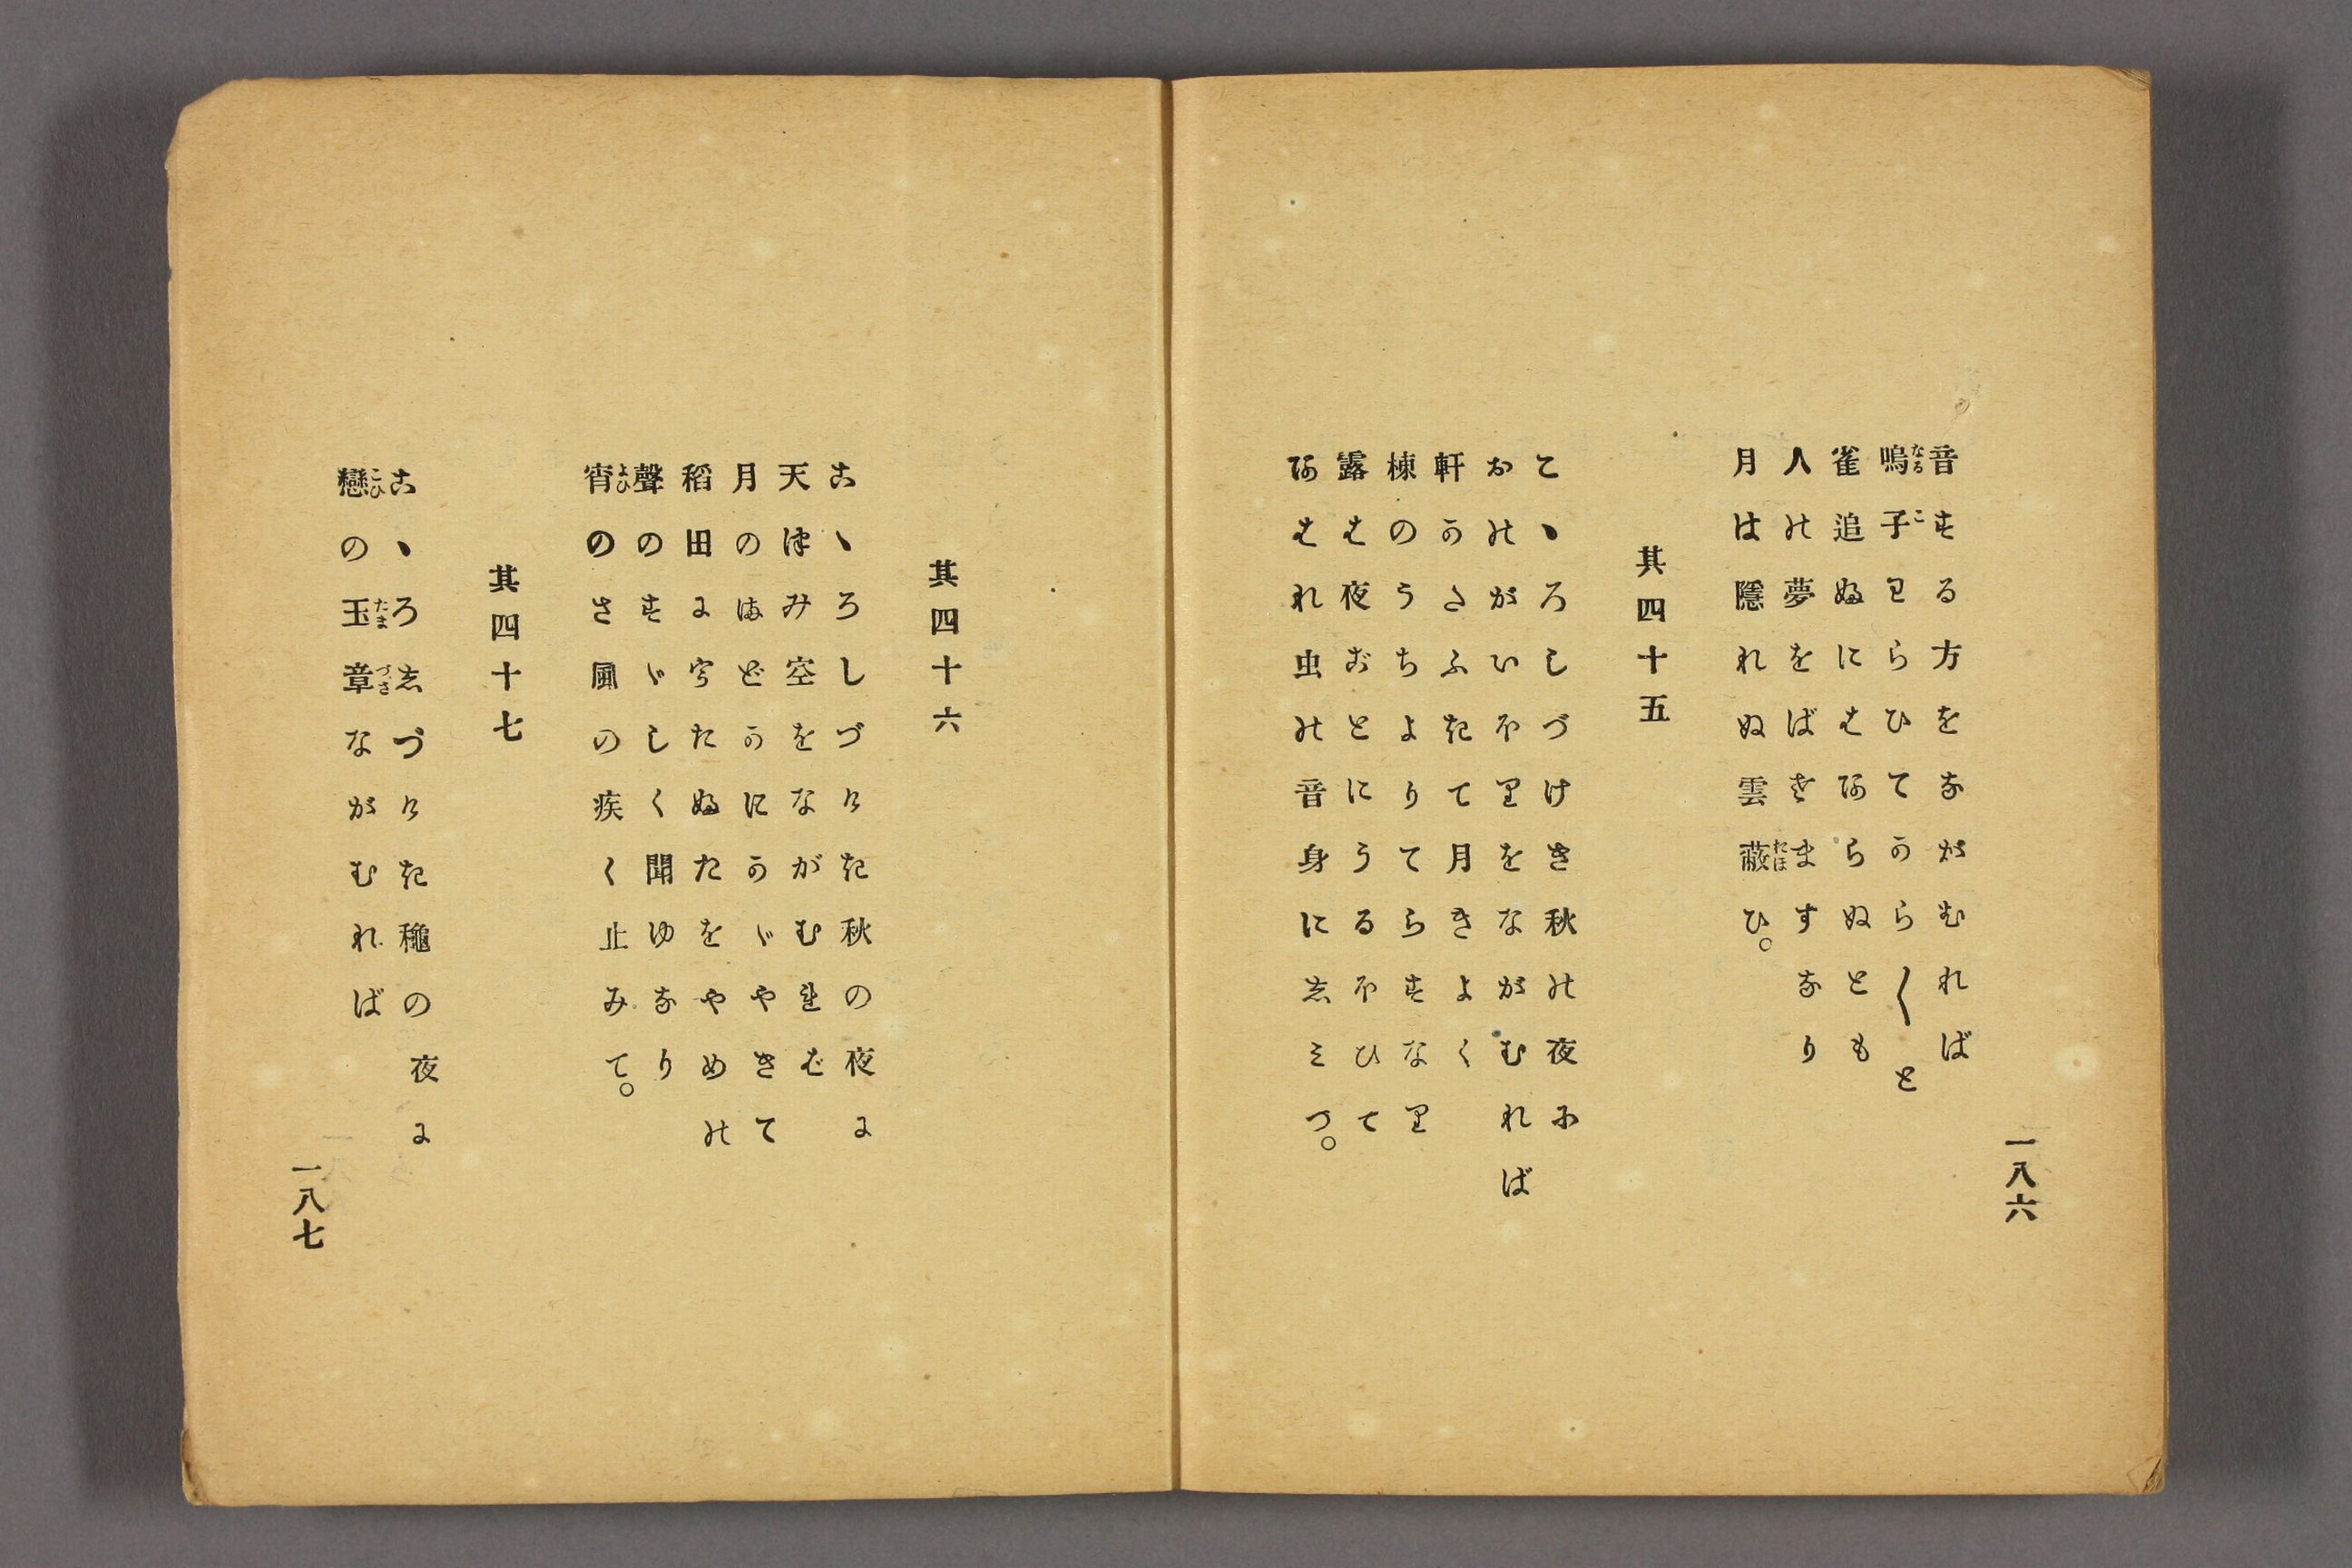 一八六
音する方をながむれば
鳴子わらひてからら〳〵と
雀追ふにはあらぬとも
人の夢をばさますなり
月は隱れぬ雲蔽ひ。
其四十五
こゝろしづけき秋の夜に
おのがいほりをながむれば
軒かたふきて月きよく
棟のうちよりてらすなり
露は夜ごとにうるほひて
あはれ虫の音身にしミつ。
其四十六
こゝろしづけき秋の夜に
天津み空をながむれば
月のまどかにかゞやきて
稻田にうたふたをやめの
聲のすゞしく聞ゆなり
宵のさ風の疾く止みて。
其四十七
こゝろしづけき龝の夜に
戀の玉章ながむれば
一八七